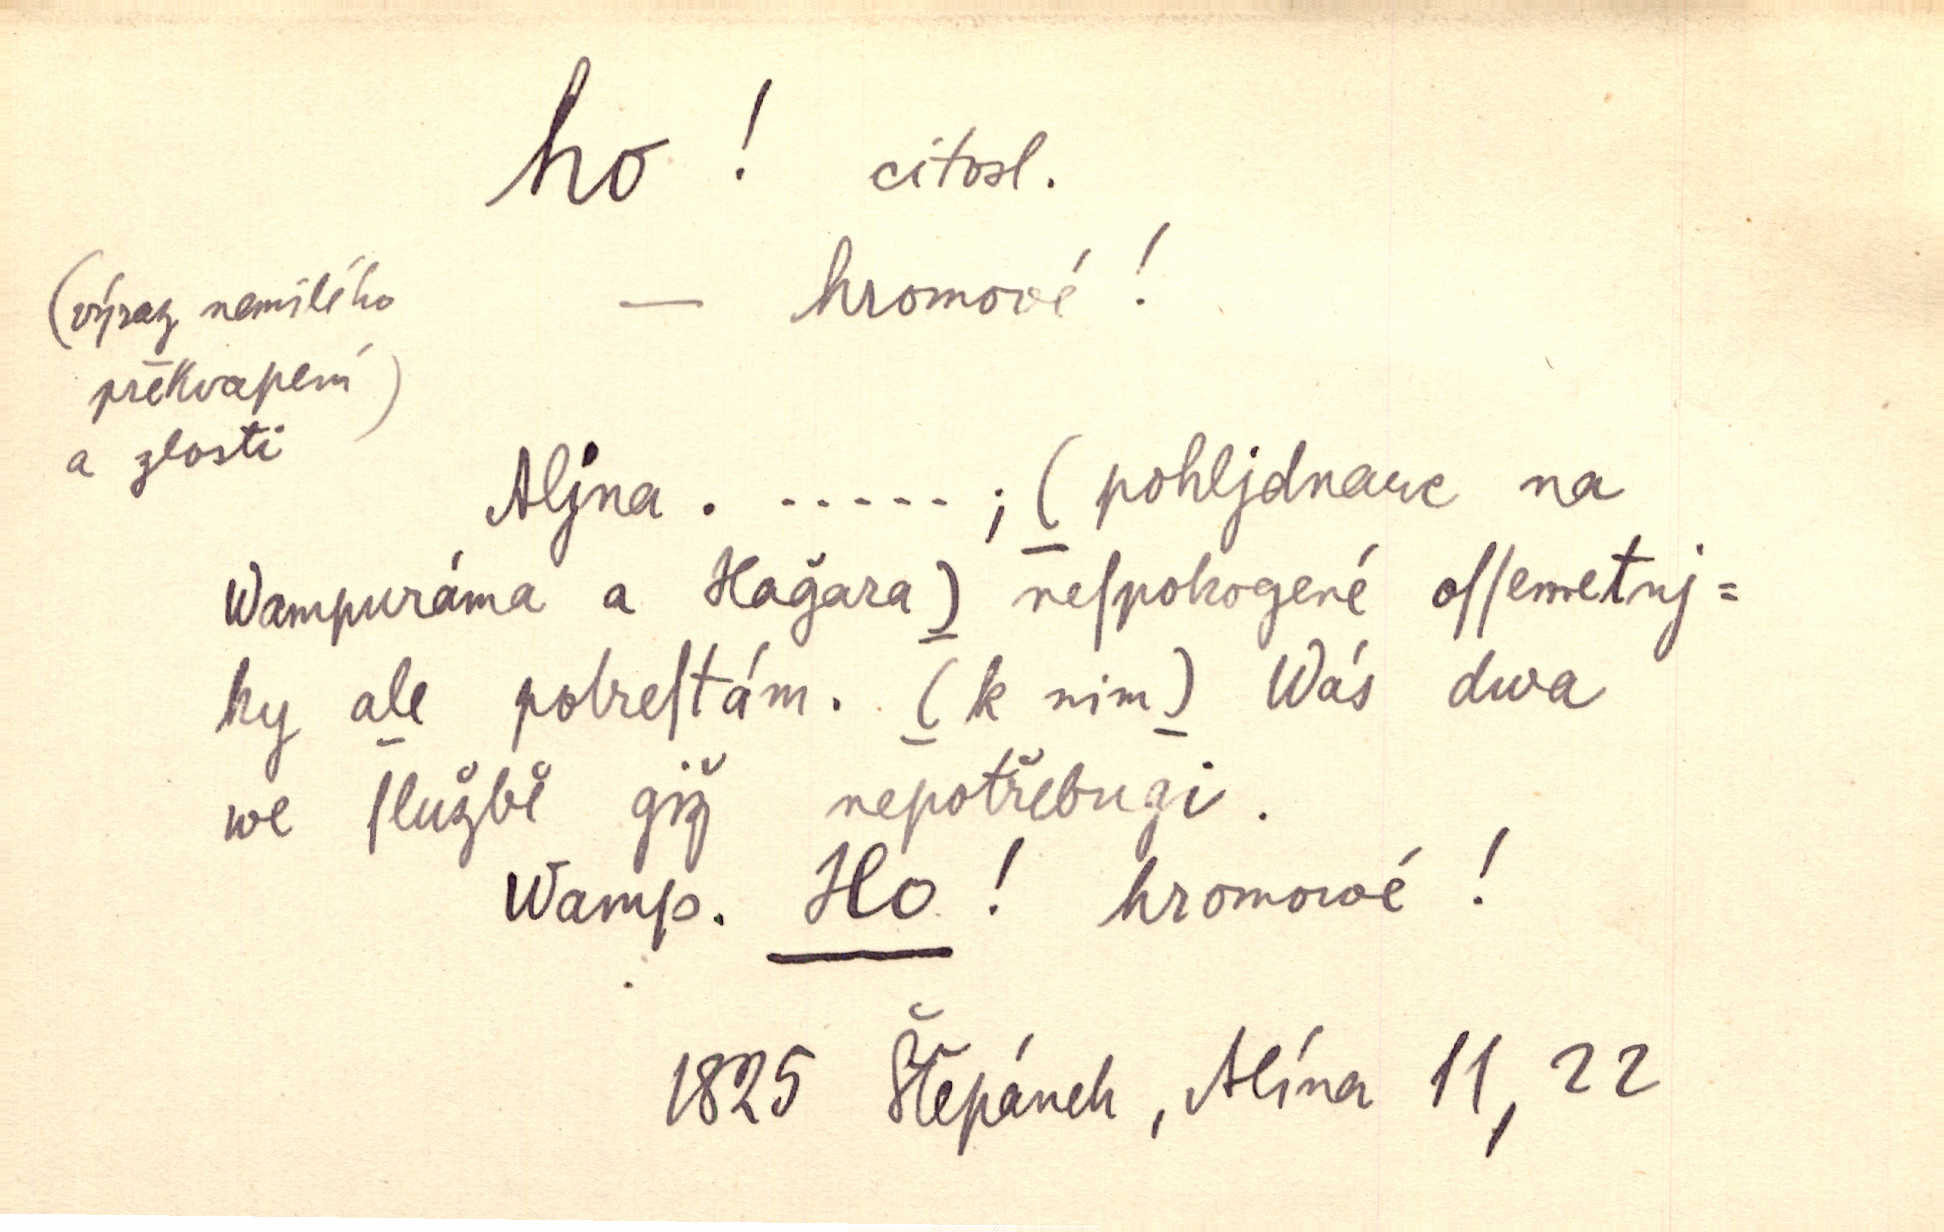 ho! citosl.
— hromové!
(výraz nemilého
překvapení)
a zlosti
Aljna. . - - - - - ; (pohljdnauc na
Wampuráma a Hağara) neſpokogené oſſemetnj=
ky ale potreſtám. (k nim) Wás dwa
we ſlužbě giž nepotřebugi.
Wamp. Ho! hromowé!
1825 Štěpánek, Alína 11, 22